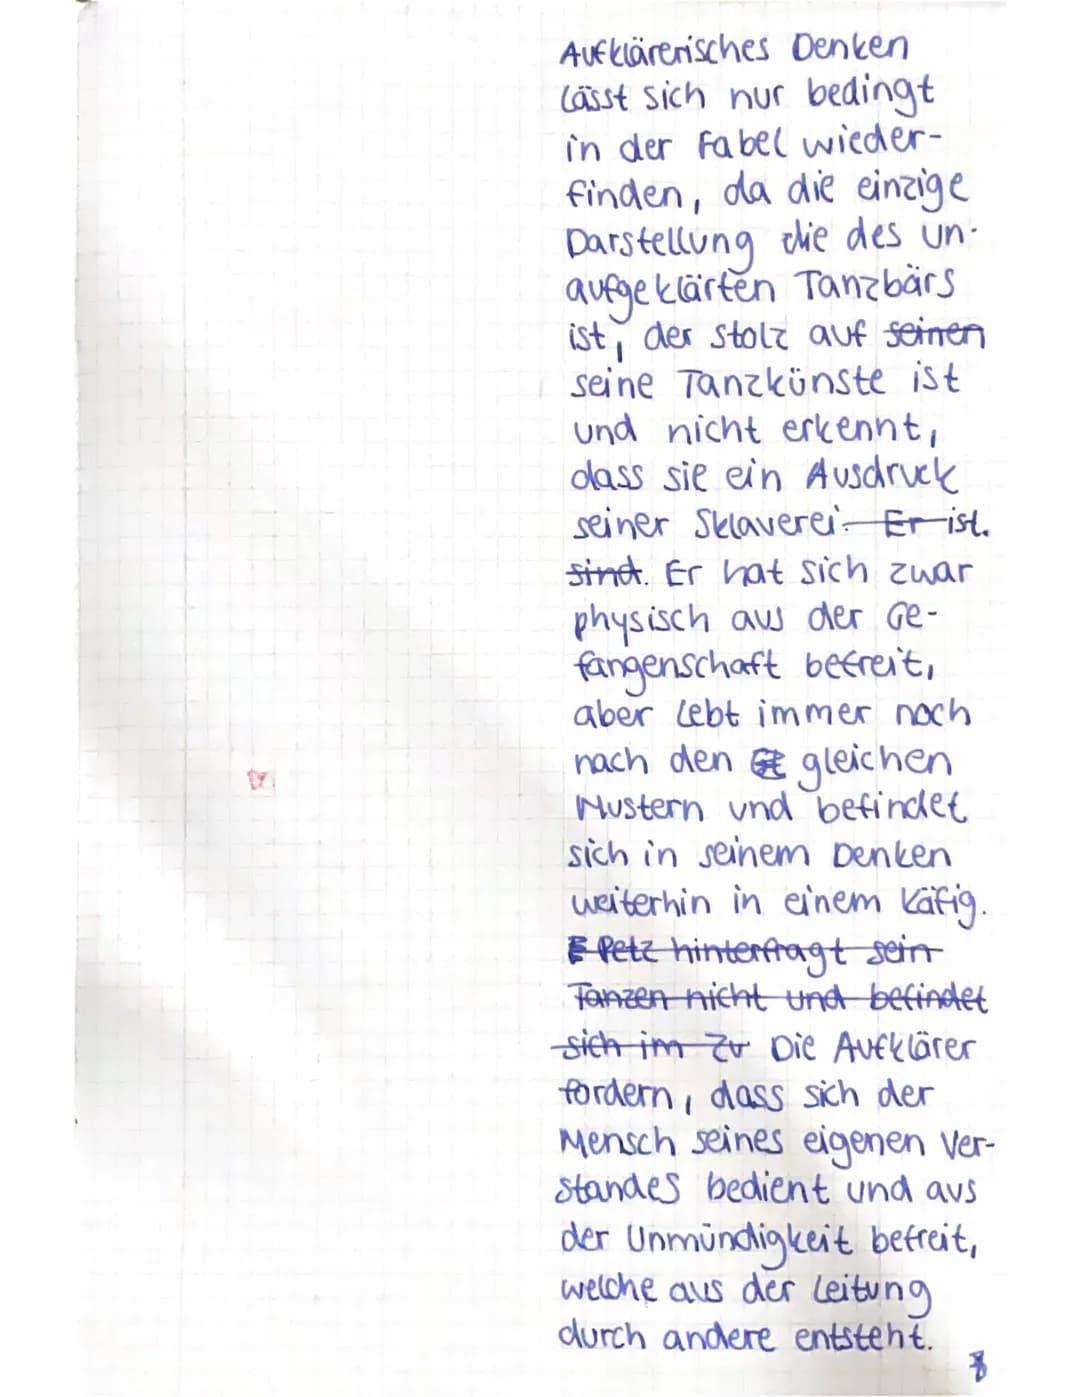 Aufklärerisches Denken
lässt sich nur bedingt
in der Fabel wieder-
finden, da die einzige
Darstellung die des un-
aufgeklärten Tanzbärs
ist, der stolz auf seinen
seine Tanzkünste ist
und nicht erkennt,
dass sie ein Ausdruck
seiner Sklaverei. Er ist.
sind. Er hat sich zwar
physisch aus der Ge-
fangenschaft befreit,
aber lebt immer noch
nach den gleichen
Mustern und befindet
sich in seinem Denken
weiterhin in einem Käfig.
E Petz hinterfragt sein
Tanzen nicht und befindet
sich im Zu Die Aufklärer
fordern, dass sich der
Mensch seines eigenen Ver-
standes bedient und aus
der Unmündigkeit befreit,
welche aus der Leitung
durch andere entsteht.